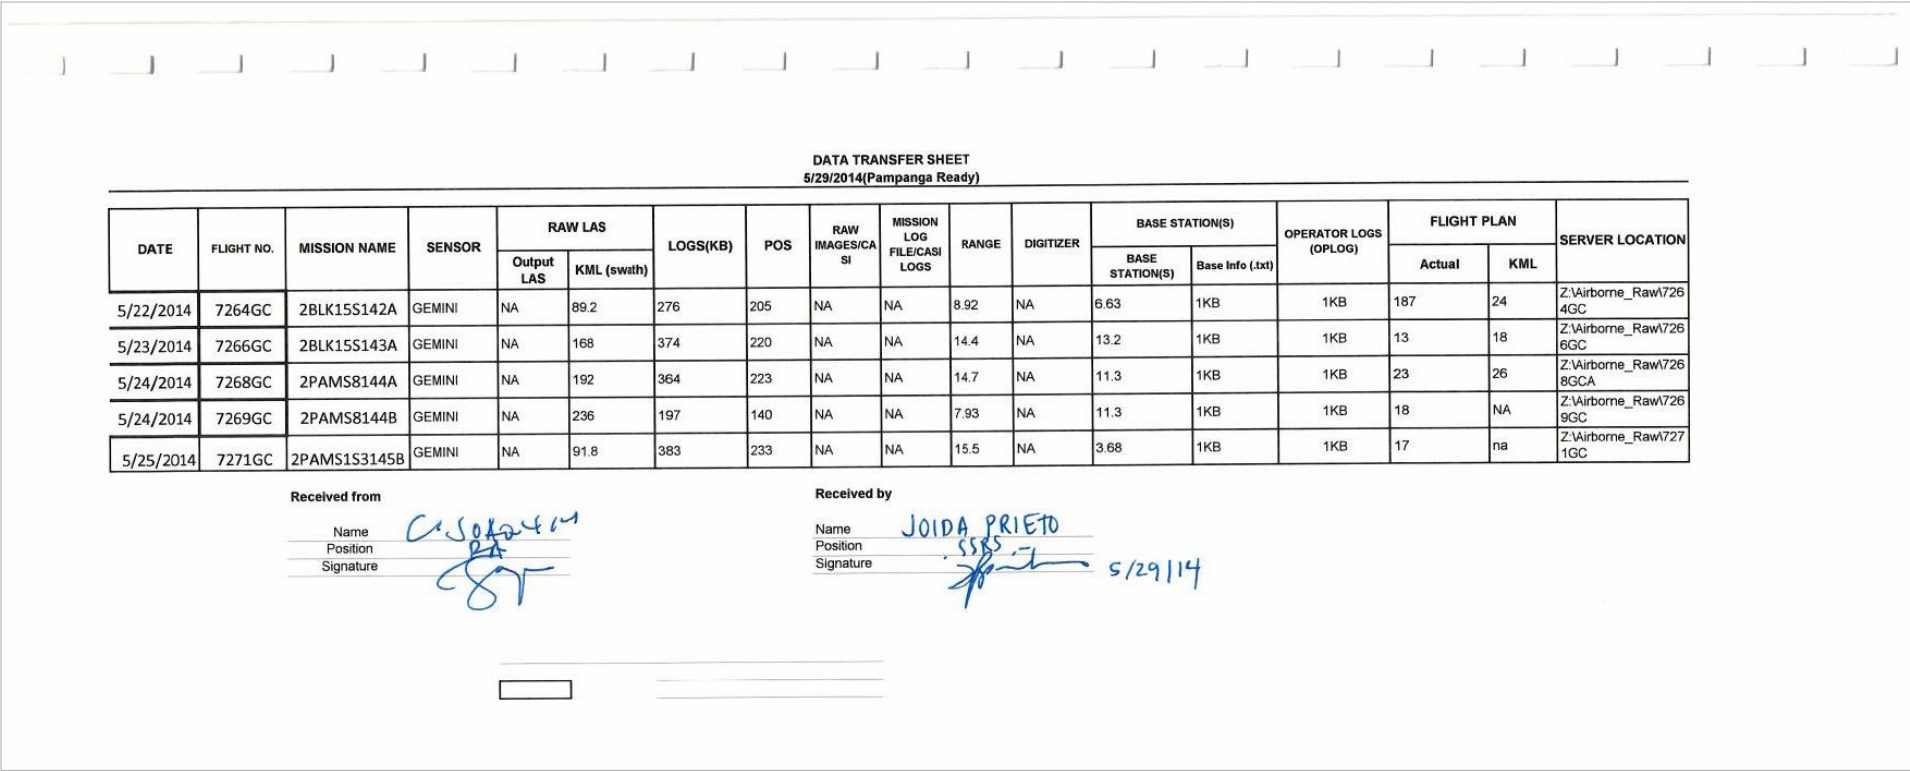 DATA TRANSFER SHEET
5/29/2014(Pampanga Ready)
DATE FLIGHT NO. MISSION NAME SENSOR RAW LAS LOGS(KB) POS RAW IMAGES/CASI MISSION LOG FILE/CASI LOGS RANGE DIGITIZER BASE STATION(S) OPERATOR LOGS (OPLOG) FLIGHT PLAN SERVER LOCATION
Output LAS KML (swath) BASE STATION(S) Base Info (.txt) Actual KML
5/22/2014 7264GC 2BLK15S142A GEMINI NA 89.2 276 205 NA NA 8.92 NA 6.63 1KB 1KB 187 24 Z:\Airborne_Raw\7264GC
5/23/2014 7266GC 2BLK15S143A GEMINI NA 168 374 220 NA NA 14.4 NA 13.2 1KB 1KB 13 18 Z:\Airborne_Raw\7266GC
5/24/2014 7268GC 2PAMS8144A GEMINI NA 192 364 223 NA NA 14.7 NA 11.3 1KB 1KB 23 26 Z:\Airborne_Raw\7268GCA
5/24/2014 7269GC 2PAMS8144B GEMINI NA 236 197 140 NA NA 7.93 NA 11.3 1KB 1KB 18 NA Z:\Airborne_Raw\7269GC
5/25/2014 7271GC 2PAMS1S3145B GEMINI NA 91.8 383 233 NA NA 15.5 NA 3.68 1KB 1KB 17 na Z:\Airborne_Raw\7271GC
Received from
Name C. JOAQUIN
Position RA
Signature
Received by
Name JOIDA PRIETO
Position SSRS
Signature 5/29/14